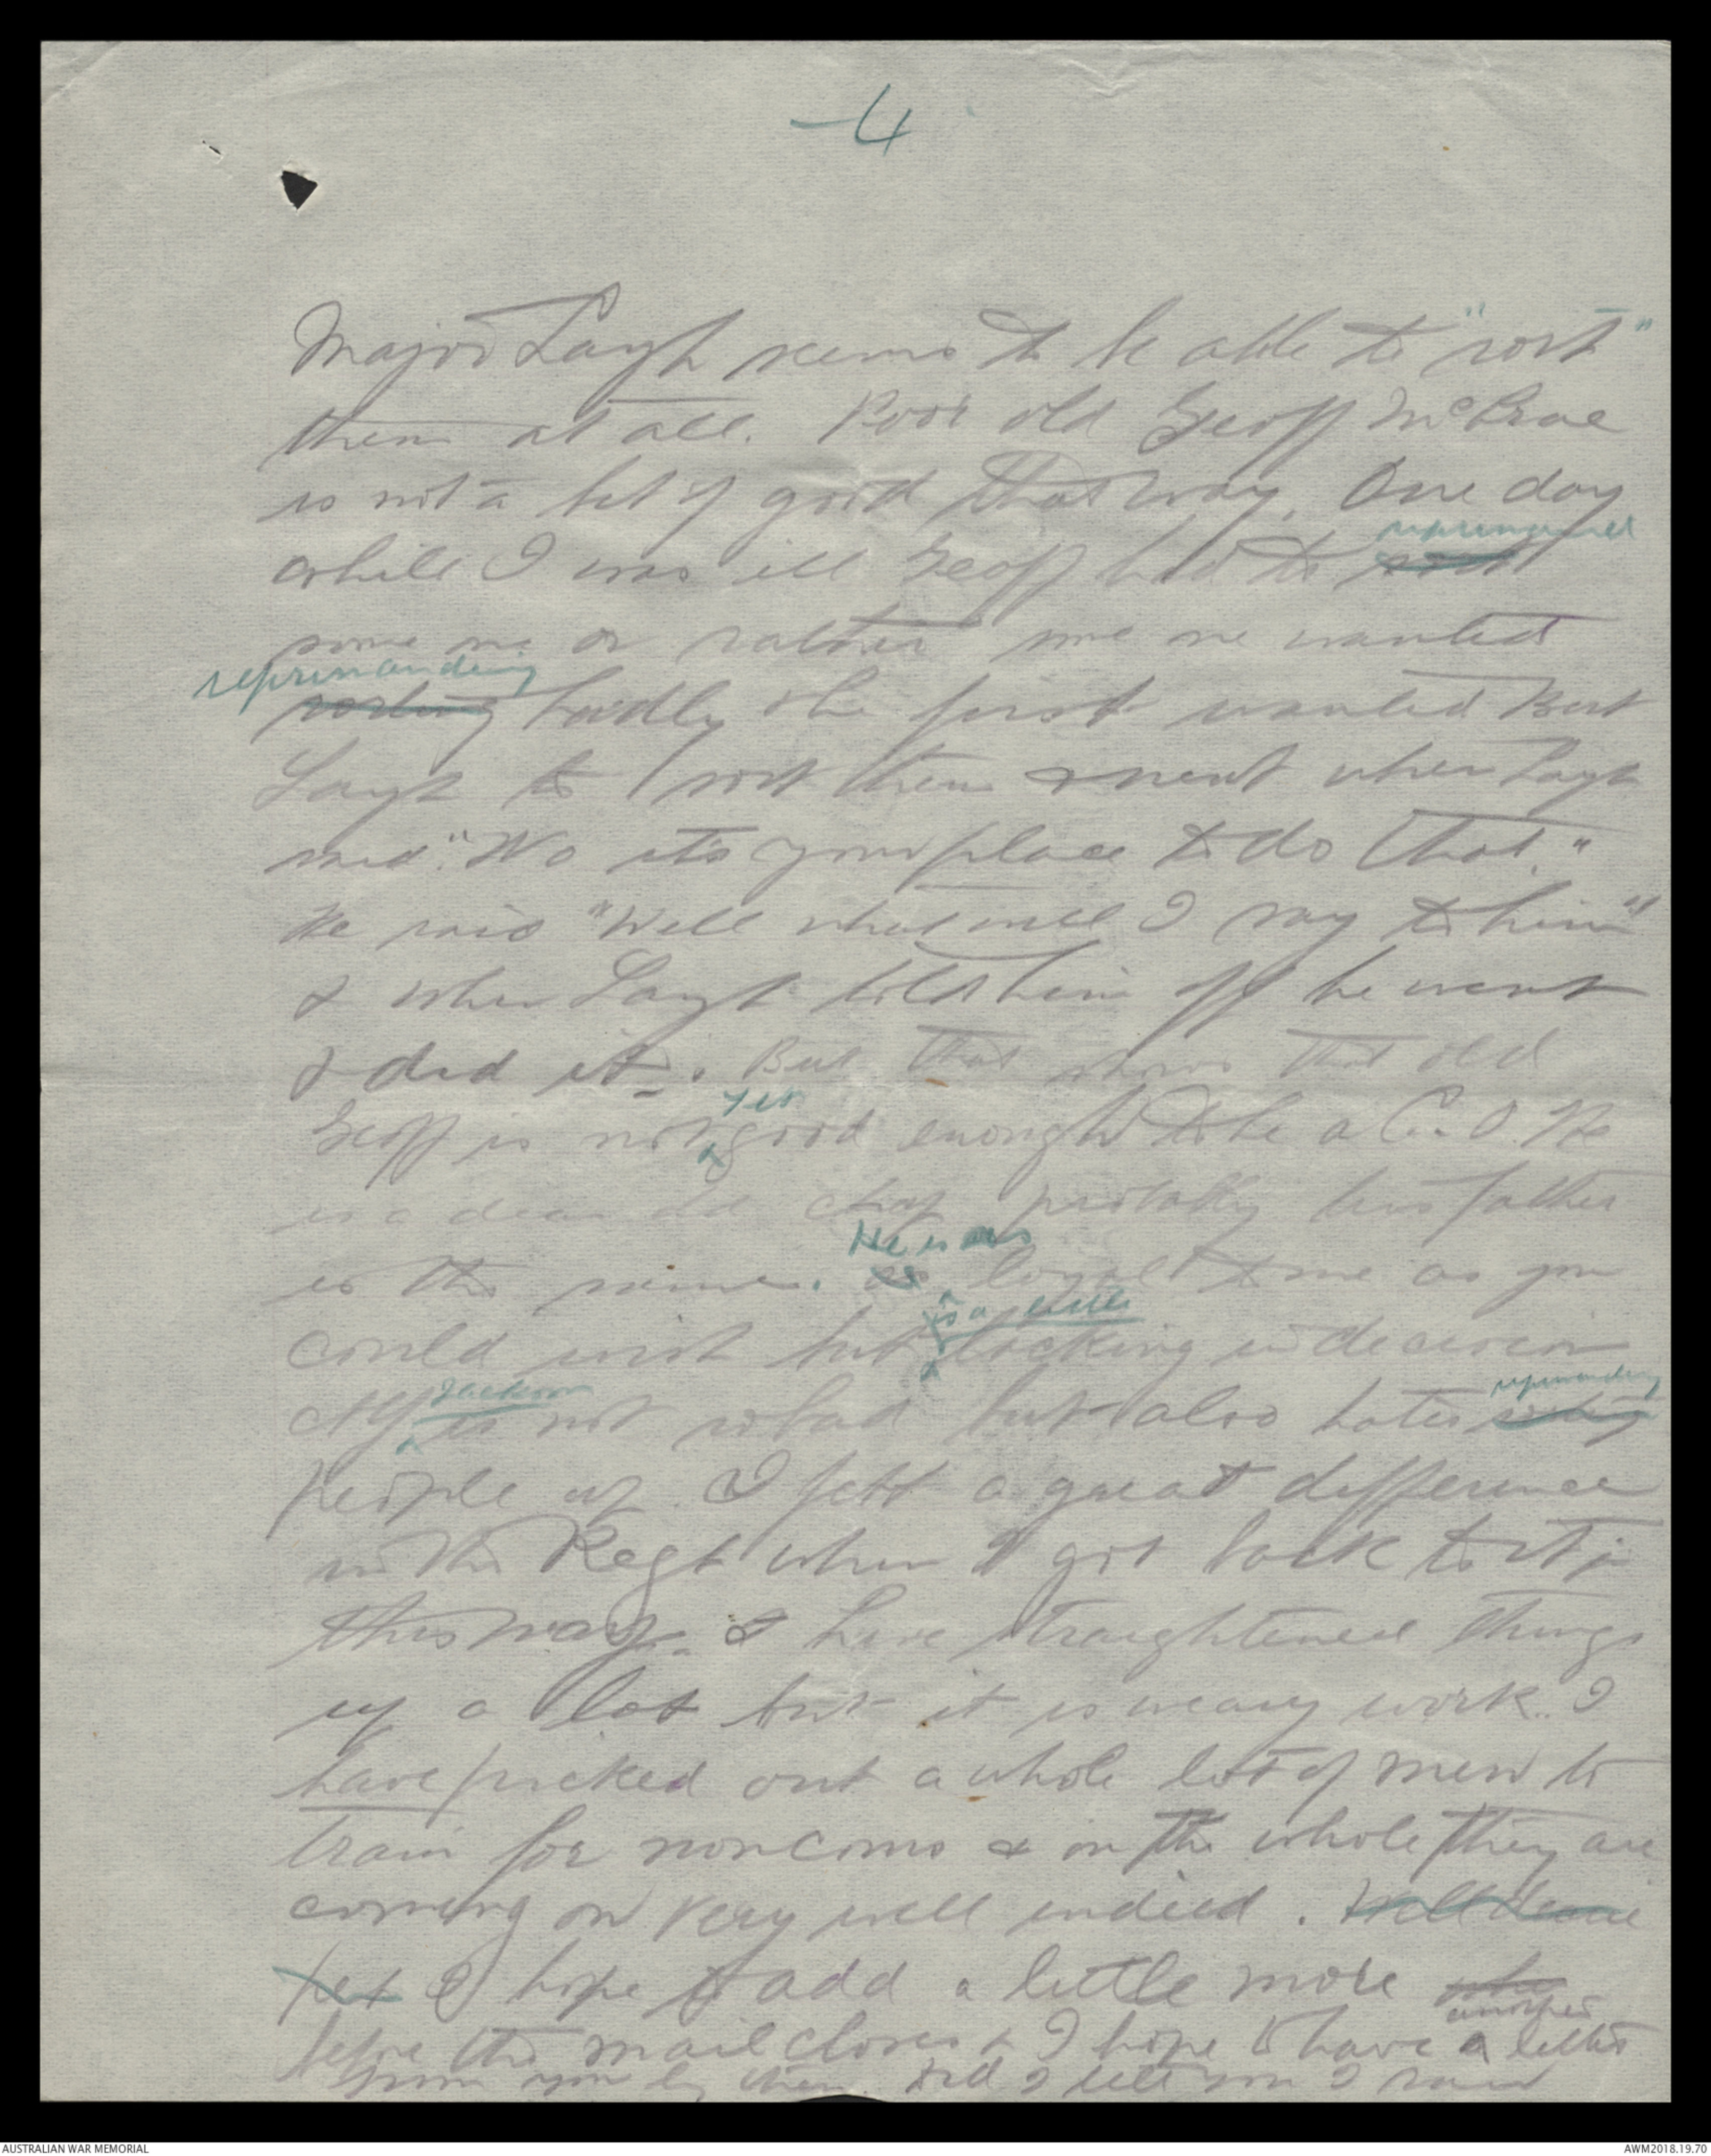 -4
Major Layh seems to be able to "rost"
them at all. Poor old Geoff McCrae
is not a bit of good that way. One day
reprimand
while I was ill Geoff had to rost
some one or rather some one wanted
reprimanding
rosting badly & he first wanted Bert
Layh to rost them & next when Layh
said "No it's your place to do that."
He said "Well what will I say to him"
& when Layh told him off he went
& did it. But that shows that old
yet
Geoff is not good enough to be a C.O. He
is a dear old chap probably his father
He is as
is the same. as loyal to me as you
is a little
could wish but lacking in decision
Jackson reprimanding
Alf is not so bad but also hates
people up. I felt a great difference
in the Regt when I got back to it in
this way. & have straightened things
up a lot but it is weary work. I
have picked out a whole lot of men to
train for noncoms & on the whole they are
coming on very well indeed. Well dearie
pet I hope to add a little more
another
before the mail closes & I hope to have a letter
from you by then. Did I tell you I
AUSTRALIAN WAR MEMORIAL
AWM2018.19.70